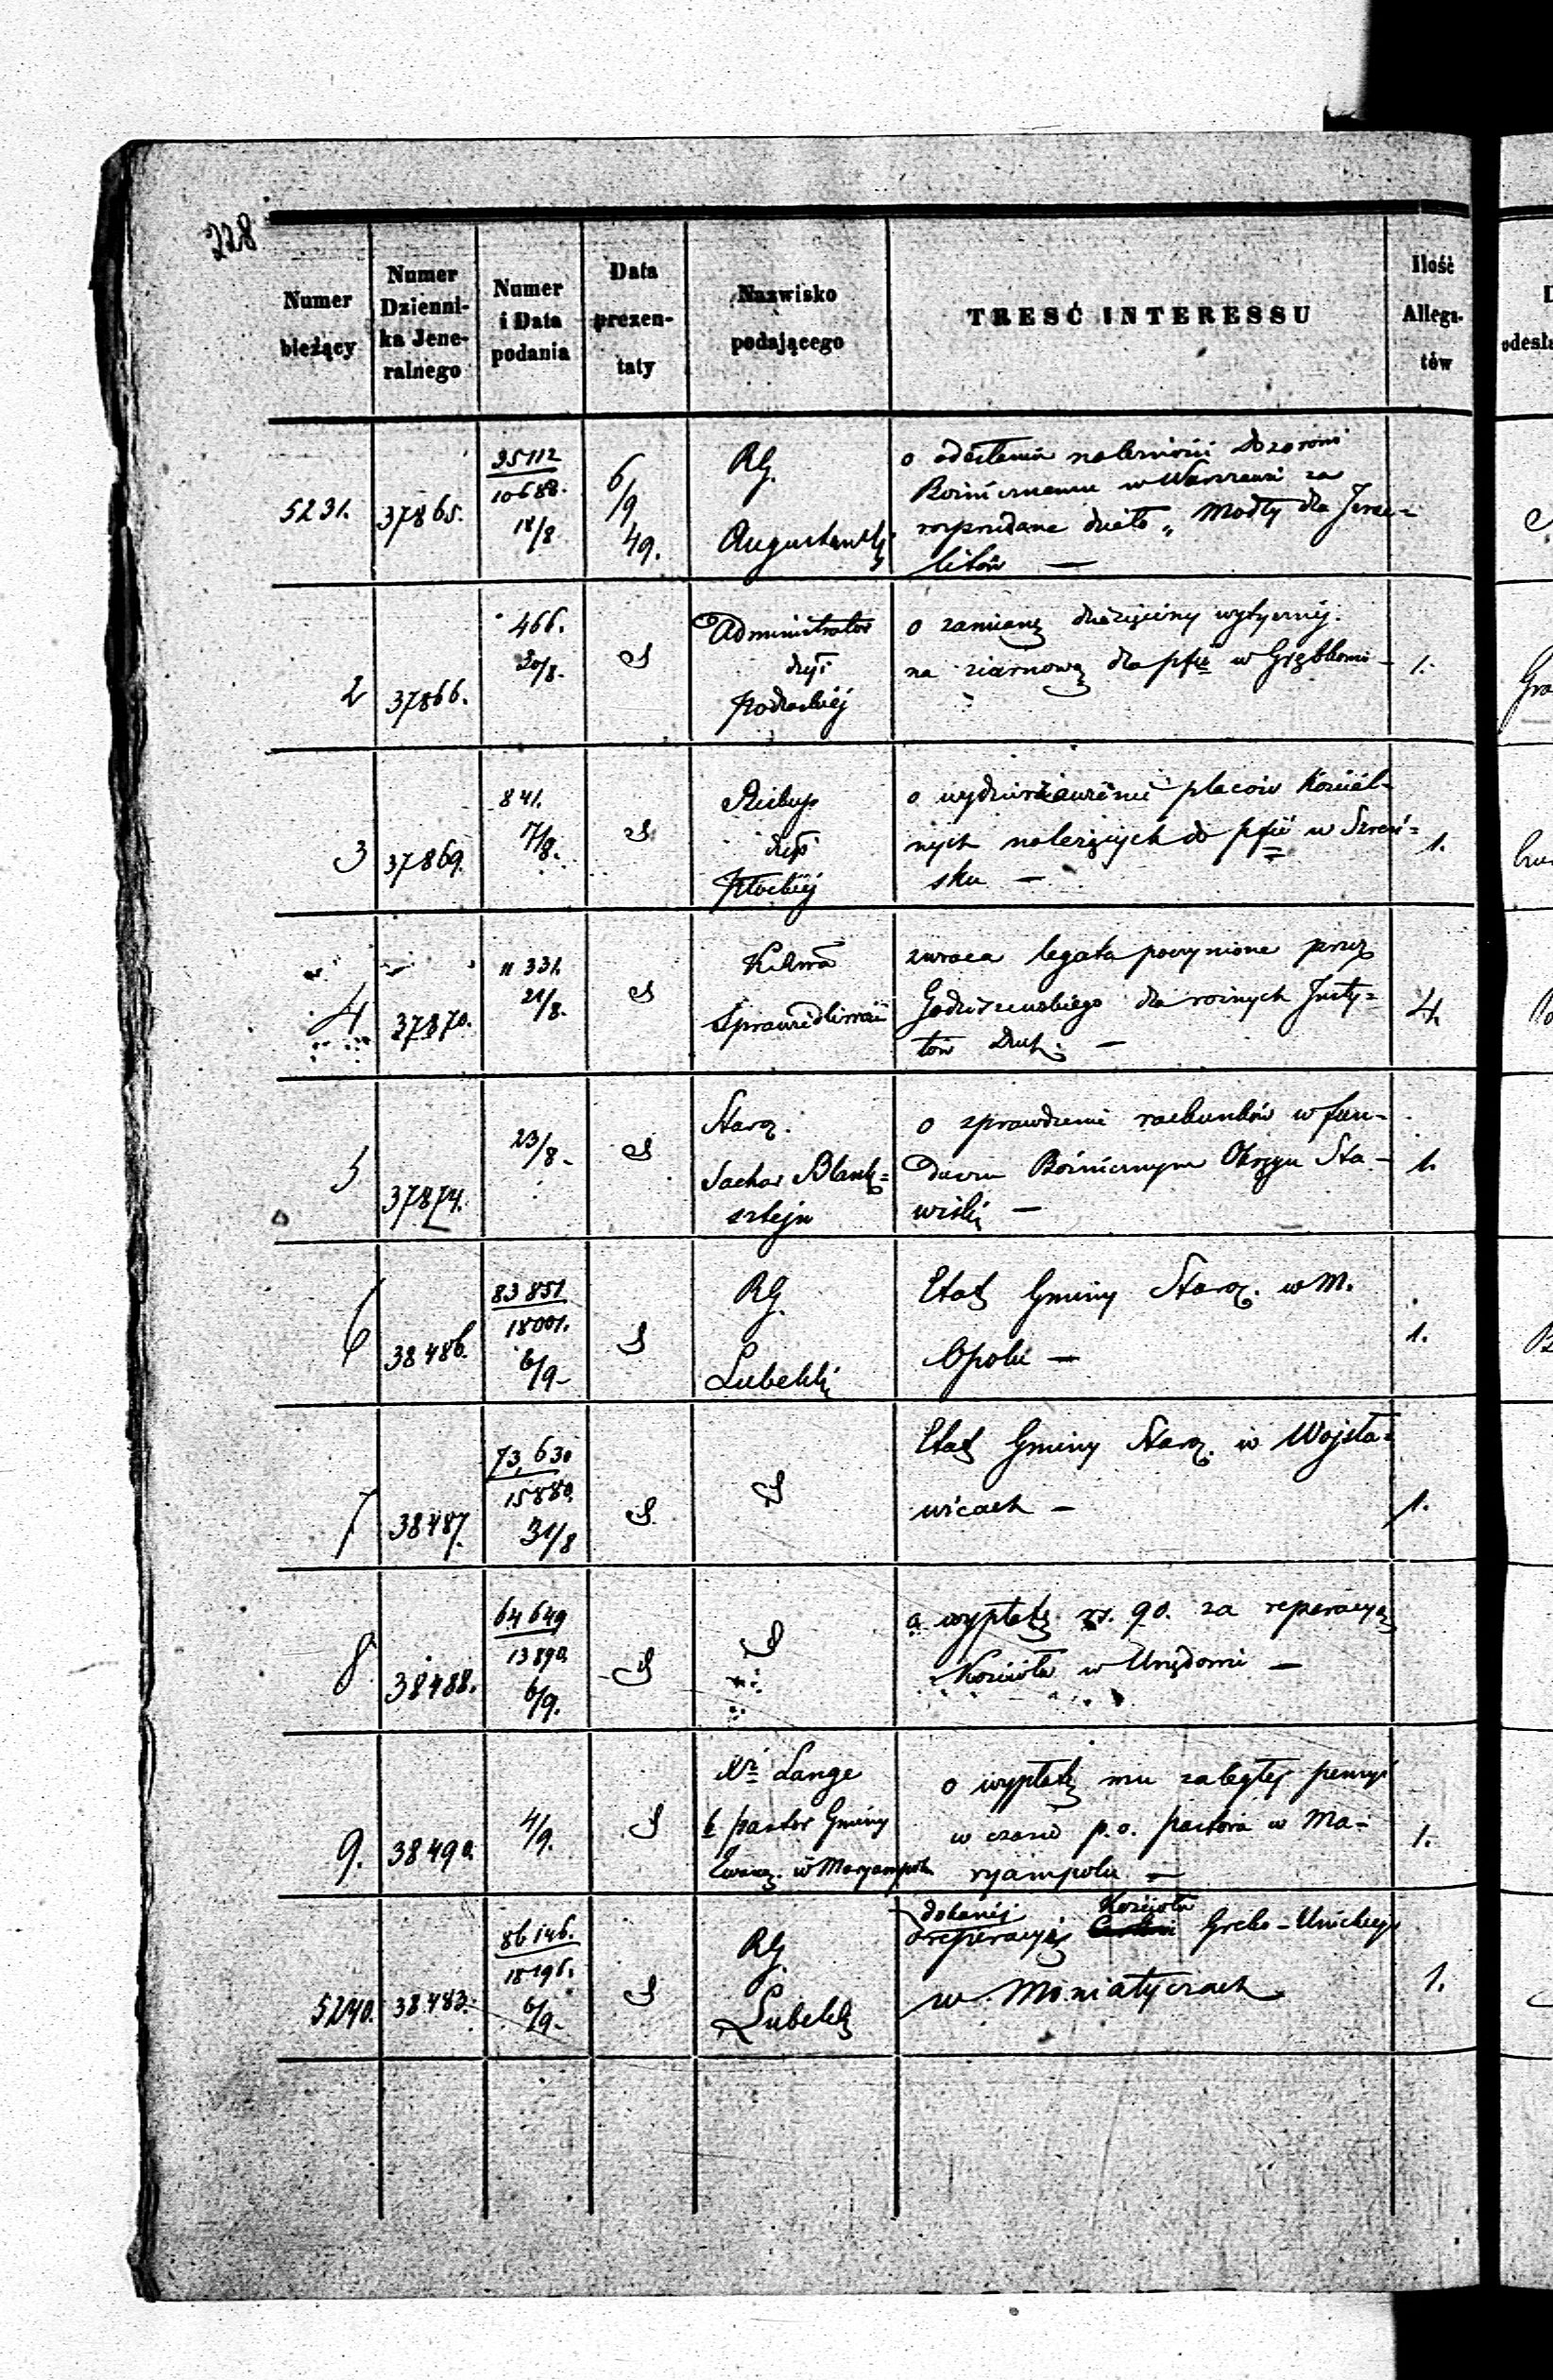 228
Numer bieżący | Numer Dzienni-ka Jene-ralnego | Numer i Data podania | Data prezen-taty | Nazwisko podającego | TRESĆ INTERESSU | Ilość Allega-tów
5231. | 37865. | 35112 / 10688. 18/8 | 6/9 49. | RG. Augustowski | o odesłanie należności Dozorowi
Bożniczemu w Warszawie za
rozprzedane dzieło „Modły dla Izrae=
litów —
2 | 37866. | 466. 20/8. | S | Administrator dyi Podlaskiej | o zamianę dziesięciny wytycznej
na ziarnową dla pfii w Grębkowie — | 1.
3 | 37869. | 841. 17/8. | S | Biskup dyi Płockiej | o wydzierżawienie placów Kościel-
nych należących do pfii w Szreń=
sku — | 1.
4 | 37870. | 11331. 21/8. | S | K. Sprawiedliwości | zwraca legata poczynione przez
dla różnych Insty=
tów Duch. — | 4.
5 | 37874. | 23/8. | S | Staroz. Sachar Blank=sztejn | o sprawdzenie rachunków w fun-
duszu Bożniczym Okręgu Sta-
wiski — | 1.
6 | 38486. | 83851 / 18001. 6/9 | S | RG. Lubelski | Etat Gminy Staroz. w M.
Opolu — | 1.
7 | 38487. | 73,630 / 15880. 31/8 | S | S | Etat Gminy Staroz. w Wojsła=
wicach — | 1.
8 | 38488. | 64649 / 13890. 6/9. | S | S | o wypłatę rs. 90. za reperacyą
Kościoła w Urzędowie —
9. | 38490. | 4/9. | S | Xdz Lange b pastor Gminy Ewang. w Maryampolu | o wypłatę mu zaległej pensyi
w czasie p.o. pastora w Ma=
ryampolu — | 1.
5240. | 38483. | 86146. / 18196. 6/9 | S | RG. Lubelski | reperacyi Kościoła Grеko-Unickiego
w Moniatyczach | 1.